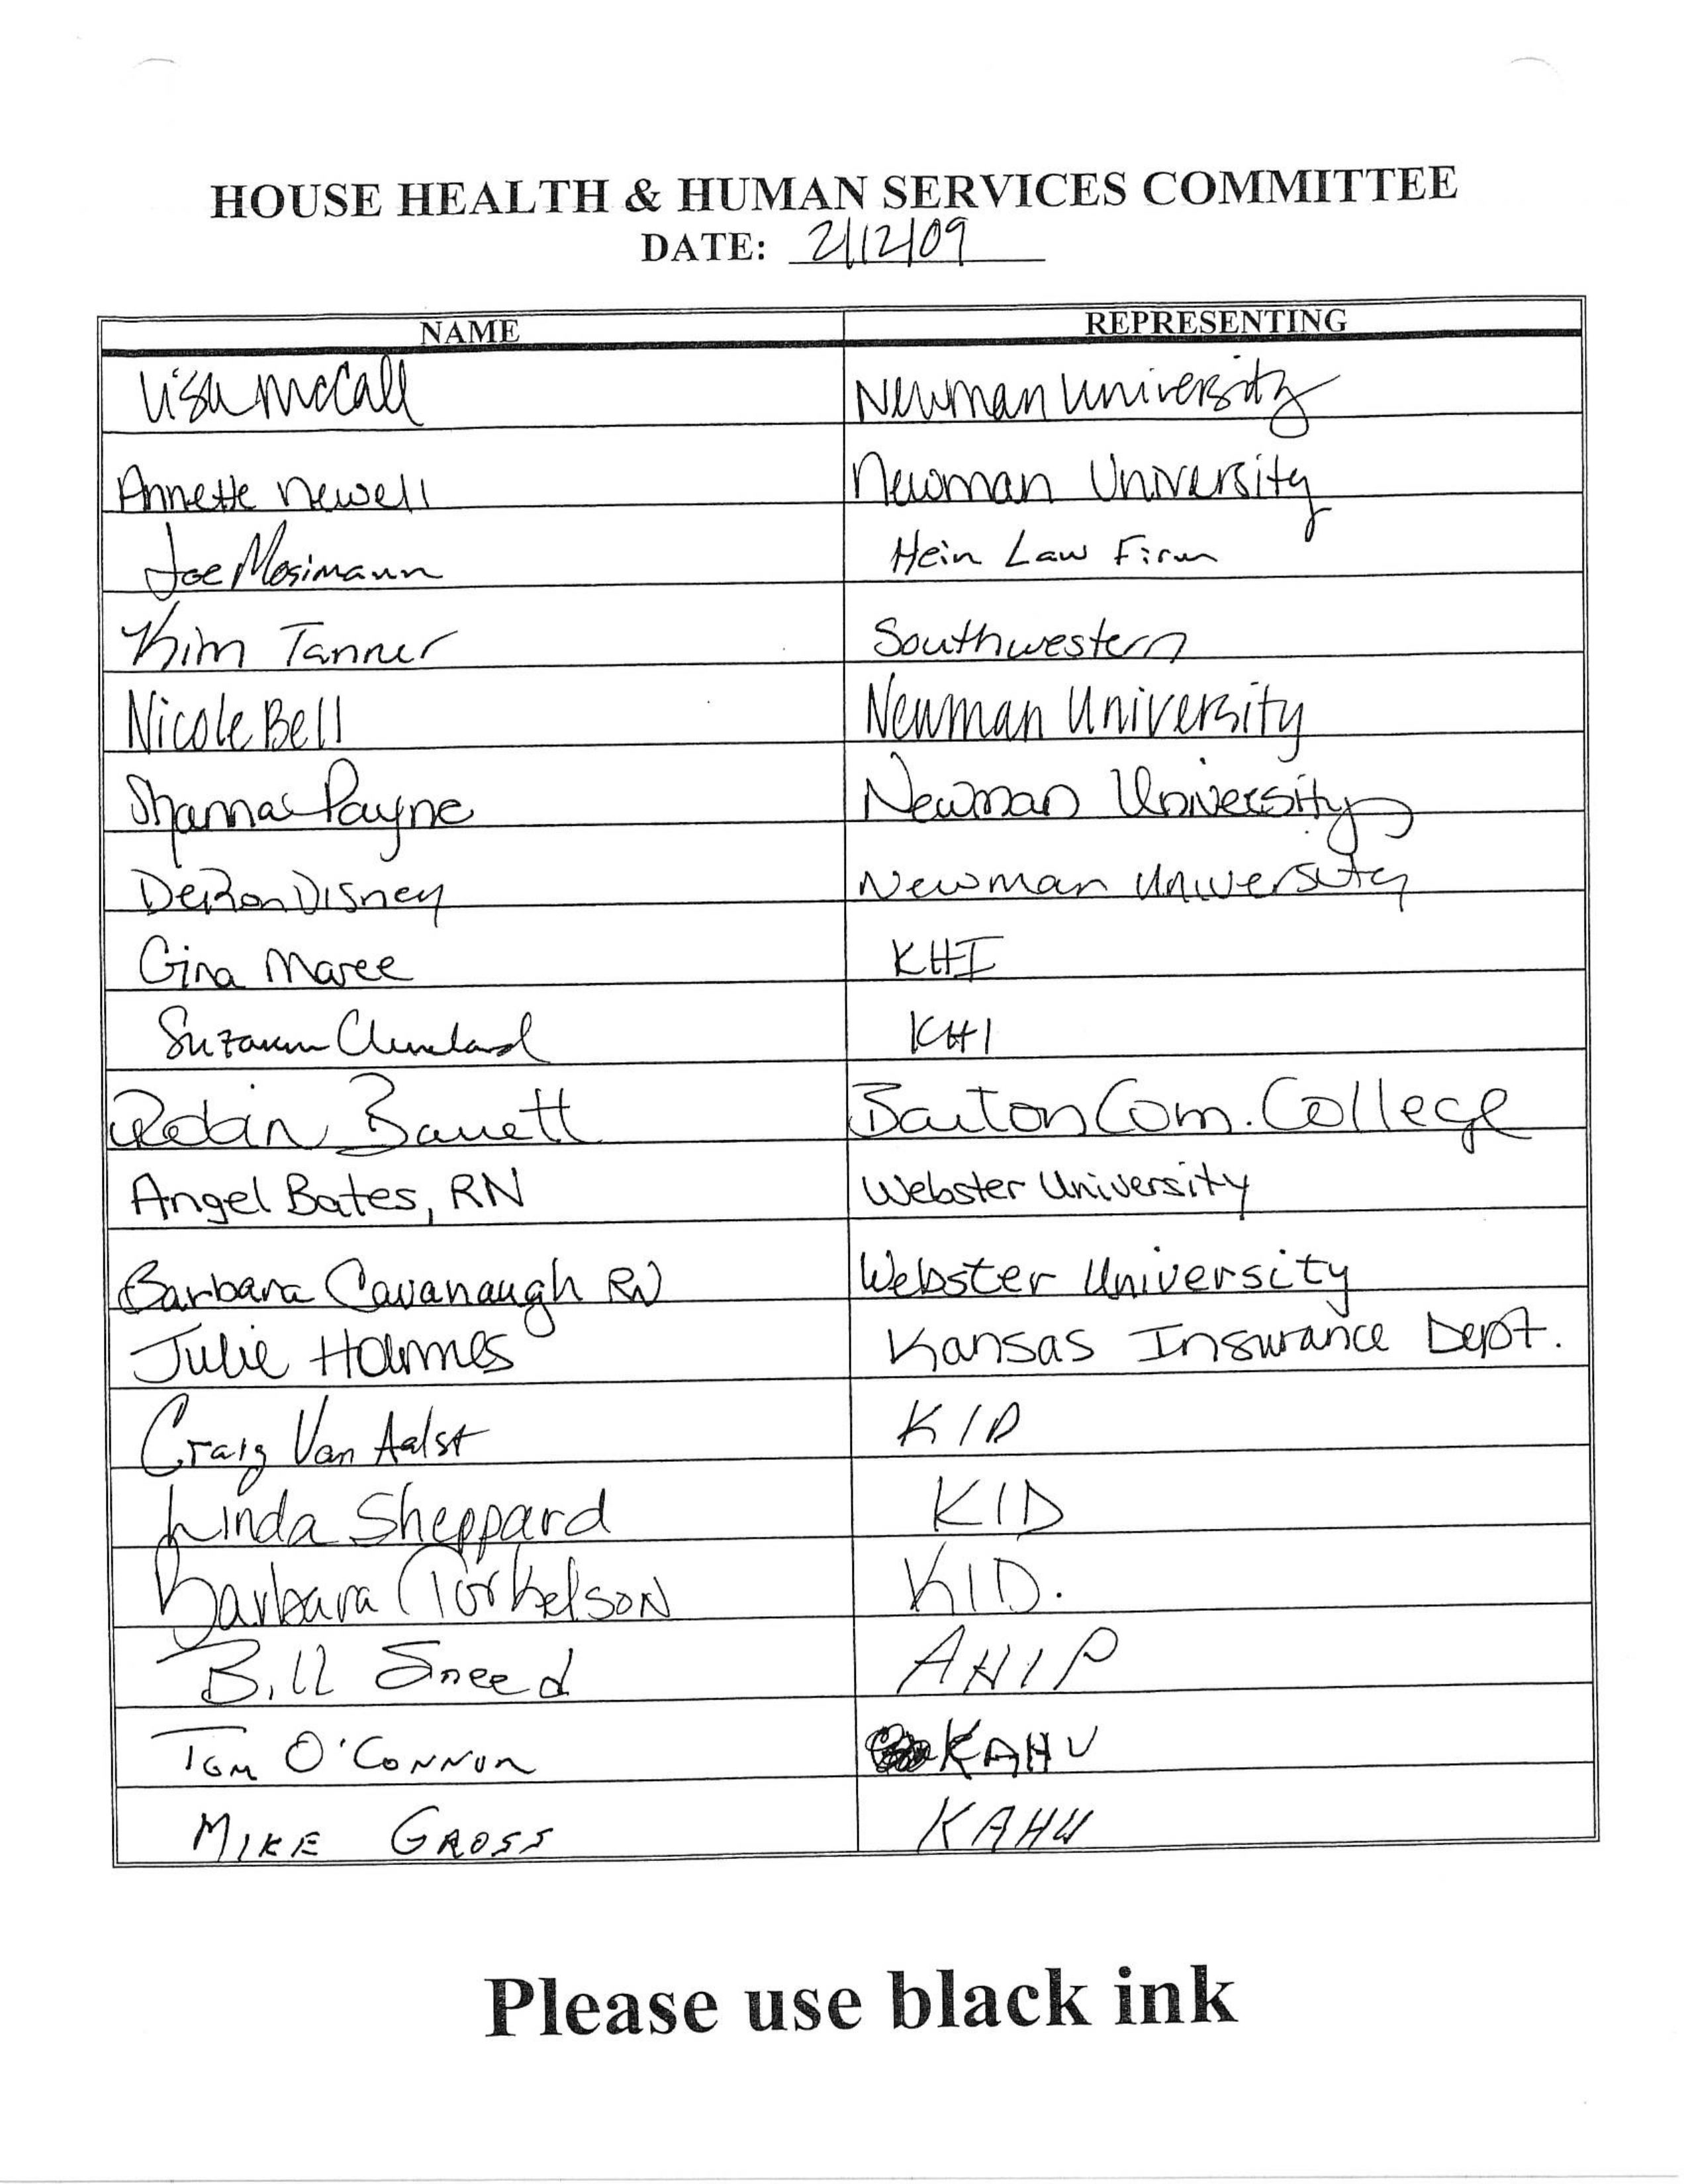 HOUSE HEALTH & HUMAN SERVICES COMMITTEE
DATE: 2/12/09
NAME REPRESENTING
Lisa McCall Newman University
Annette Newell Newman University
Joe Mosimann Hein Law Firm
Kim Tanner Southwestern
Nicole Bell Newman University
Shanna Payne Newman University
DeRon Disney Newman University
Gina Maree KHI
Suzanne Cleveland KHI
Robin Barrett Barton Com. College
Angel Bates, RN Webster University
Barbara Cavanaugh RN Webster University
Julie Holmes Kansas Insurance Dept.
Craig Van Aalst KID
Linda Sheppard KID
Barbara Torkelson KID.
Bill Sneed AHIP
Tom O'Connor KAHU
MIKE GROSS KAHU
Please use black ink